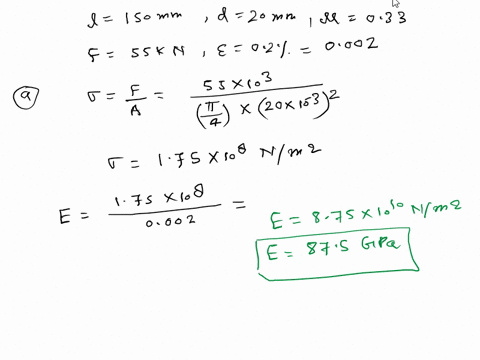 l = 150 mm , d = 20 mm , μ = 0.33
F = 55 KN , ε = 0.2% = 0.002
(a) σ = F/A = 55 × 10^3 / ((π/4) × (20 × 10^-3)^2)
σ = 1.75 × 10^8 N/m2
E = 1.75 × 10^8 / 0.002 =
E = 8.75 × 10^10 N/m2
E = 87.5 GPa